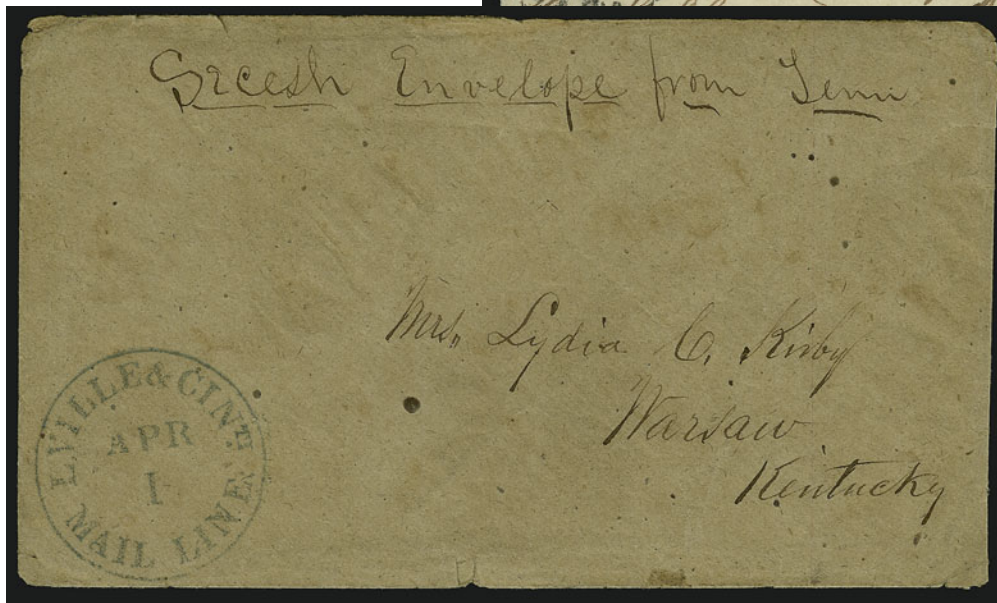 Secesh Envelope from Tenn
Mrs. Lydia C. Kirby
Warsaw
Kentucky
L'VILLE & CINTI
MAIL LINE
APR
1